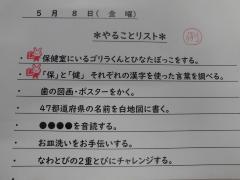 5 月 8 日 ( 金 曜 )
＊やることリスト＊
・保健室にいるゴリラくんとひなたぼっこをする。
・「保」と「健」 それぞれの漢字を使った言葉を調べる。
・歯の図画・ポスターをかく。
・47都道府県の名前を白地図に書く。
・●●●●を音読する。
・お皿洗いをお手伝いする。
・なわとびの2重とびにチャレンジする。